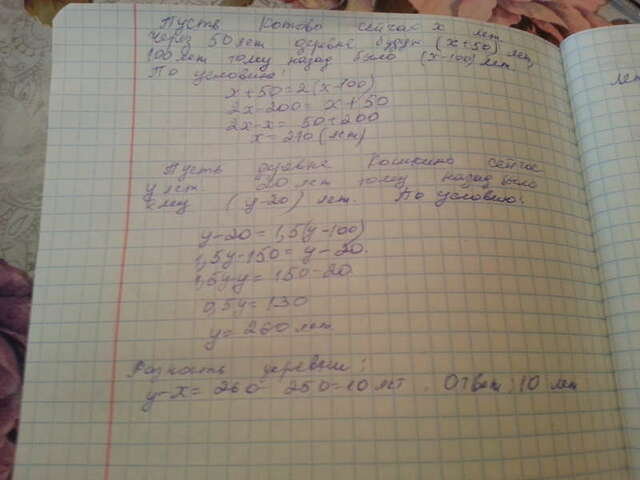 Пусть Котово сейчас x лет
Через 50 лет деревне будет (x+50) лет,
100 лет тому назад было (x-100) лет
По условию:
x+50=2(x-100)
2x-200=x+50
2x-x=50+200
x=250(лет)
Пусть деревне Кошкино сейчас
y лет. 20 лет тому назад было
ему (y-20) лет. По условию:
y-20=1,5(y-100)
1,5y-150=y-20
1,5y-y=150-20
0,5y=130
y=260 лет
Разность деревень:
y-x=260-250=10 лет. Ответ: 10 лет
лет